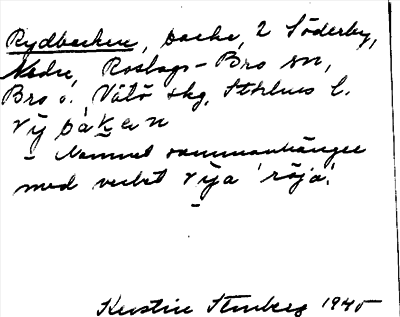 Rydbacken, backe, 2 Söderby,
Nedre, Roslags-Bro sn,
Bro o. Vätö skg, Sthlms l.
rȳbaken
– Namnet sammanhänger
med verbet rȳa 'röja'.
Kerstin Stenberg 1945